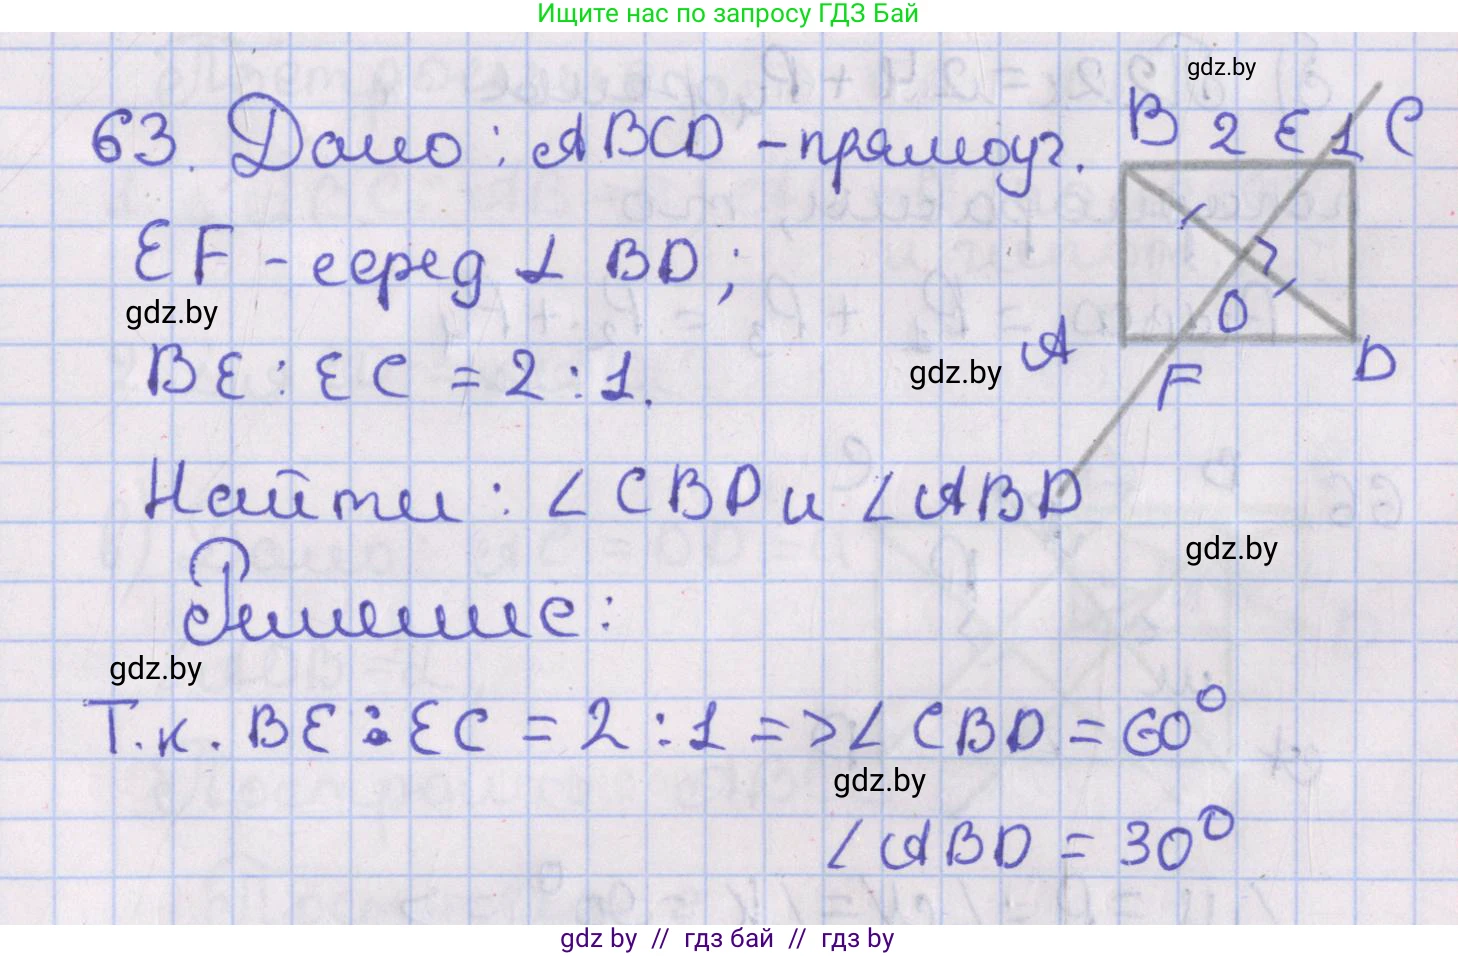 Ищите нас по запросу ГДЗ Бай
gdz.by
63. Дано: ABCD - прямоуг.
B 2 E 1 C
EF - серед ⊥ BD;
gdz.by
O
BE : EC = 2 : 1.
gdz.by
A
F
D
Найти: ∠CBD и ∠ABD
gdz.by
Решение:
gdz.by
Т.к. BE : EC = 2 : 1 => ∠CBD = 60°
gdz.by
∠ABD = 30°
gdz by // гдз бай // gdz by